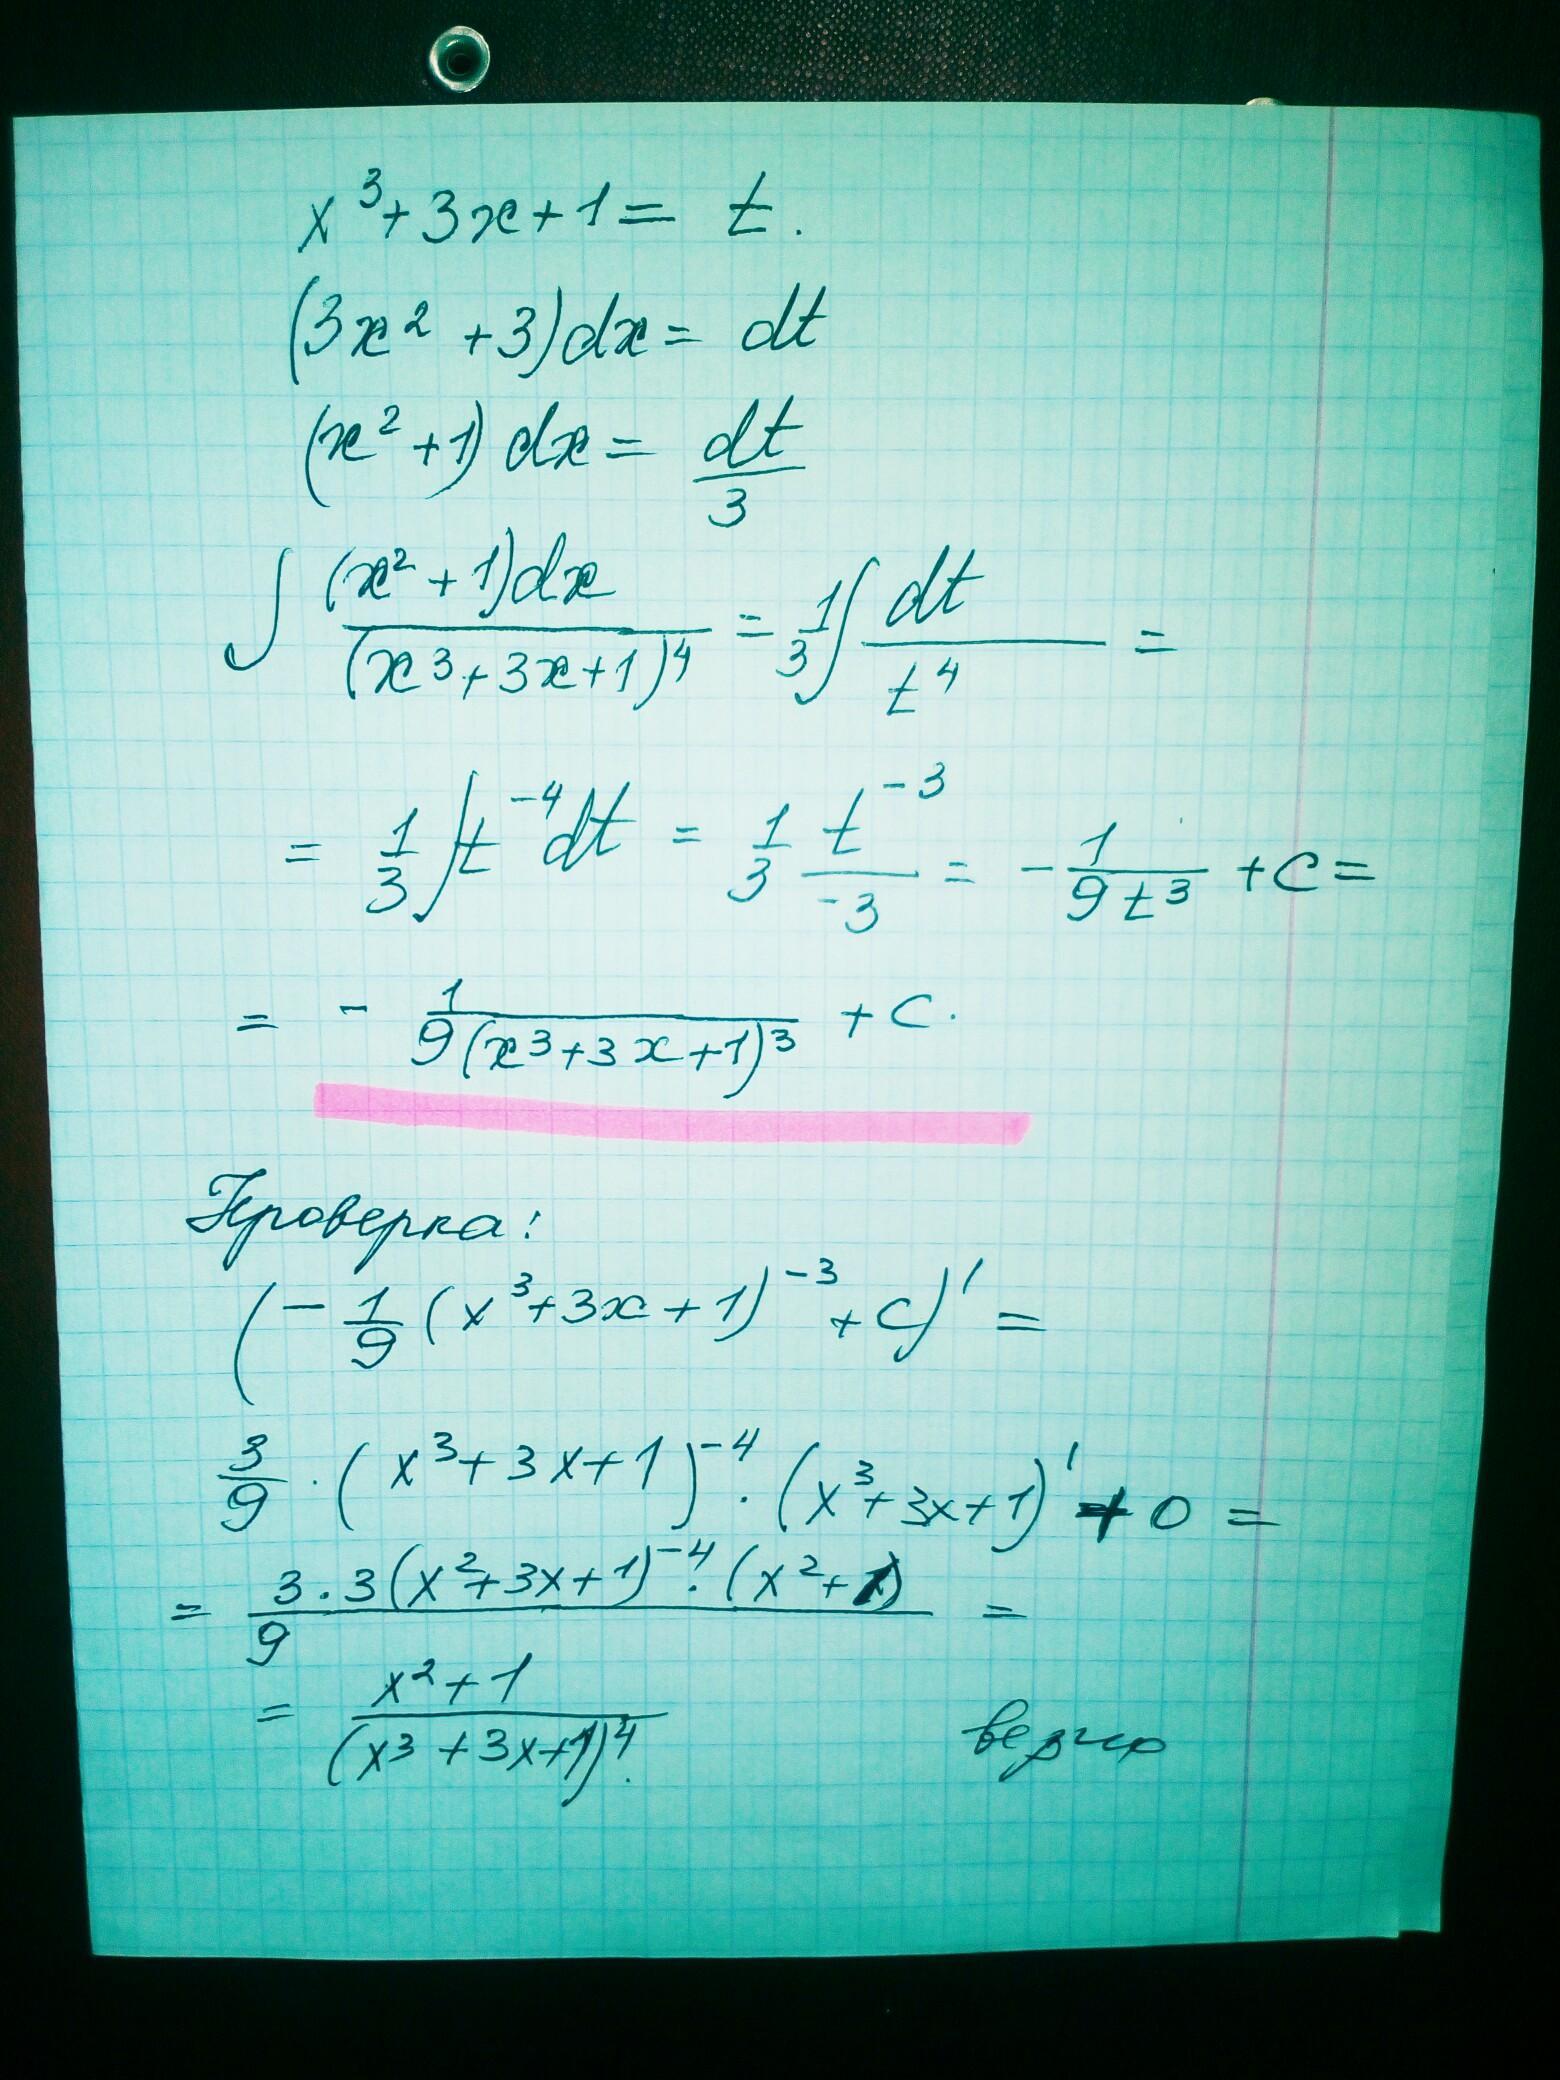 x³+3x+1= t.
(3x² +3)dx= dt
(x²+1) dx= dt/3
∫ (x²+1)dx/(x³+3x+1)⁴ = 1/3 ∫ dt/t⁴ =
= 1/3 ∫t⁻⁴dt = 1/3 t⁻³/-3 = - 1/9t³ +C=
= - 1/9(x³+3x+1)³ +C.
Проверка:
(-1/9 (x³+3x+1)⁻³+C)' =
3/9 · (x³+3x+1)⁻⁴ · (x³+3x+1)' + 0 =
= 3·3(x²+3x+1)⁻⁴·(x²+1)/9 =
= x²+1/(x³+3x+1)⁴. верно